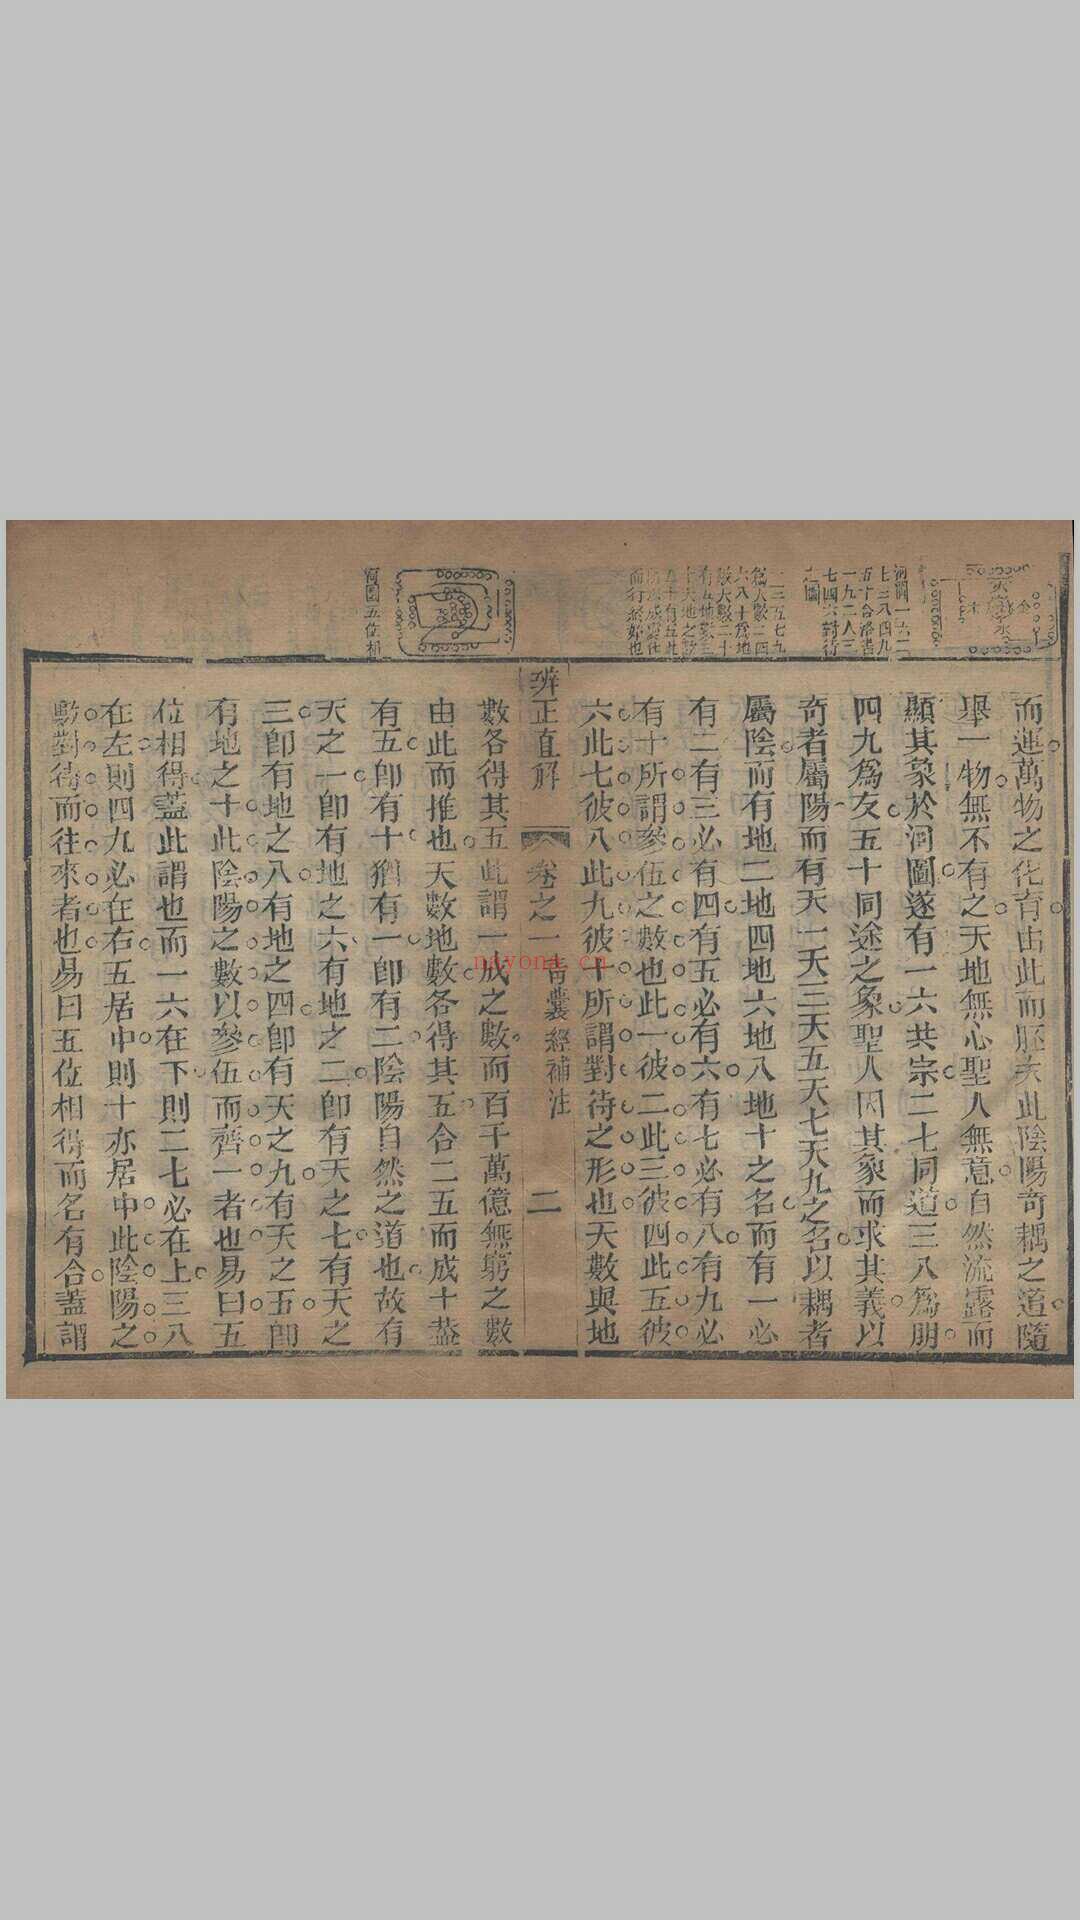 而運萬物之化育由此而胚夫此陰陽奇耦之道隨
舉一物無不有之天地無心聖人無意自然流露而
顯其象於河圖遂有一六共宗二七同道三八爲朋
四九爲友五十同途之象聖人因其象而求其義以
奇者屬陽而有天一天三天五天七天九之名以耦者
屬陰而有地二地四地六地八地十之名而有一必
有二有三必有四有五必有六有七必有八有九必
有十所謂參伍之數也此一彼二此三彼四此五彼
六此七彼八此九彼十所謂對待之形也天數與地
辨正直解
卷之一
青囊經補注
二
數各得其五此謂一成之數而百千萬億無窮之數
由此而推也天數地數各得其五合二五而成十蓋
有五卽有十猶有一卽有二陰陽自然之道也故有
天之一卽有地之六有地之二卽有天之七有天之
三卽有地之八有地之四卽有天之九有天之五卽
有地之十此陰陽之數以參伍而齊一者也易曰五
位相得蓋此謂也而一六在下則二七必在上三八
在左則四九必在右五居中則十亦居中此陰陽之
數對待而往來者也易曰五位相得而各有合蓋謂
河圖一六二
七三八四九
五十合洛書
一九二八三
七四六對待
之圖
一三五七九
爲天數二四
六八十爲地
數天數二十
有五地數三
十天地之數
五十有五此
所以成變化
而行鬼神也
河圖五位相
nayona.cn